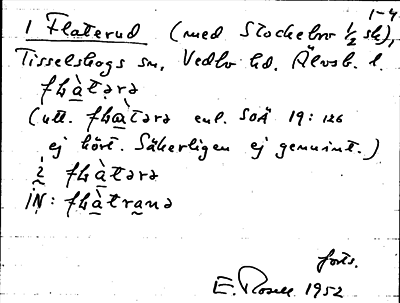 1-4
1 Flaterud (med Stockebro 1/2 sk),
Tisselskogs sn, Vedbo hd. Älvsb. l.
flàtərə
(utt. flàtərə enl. SOÄ 19:126
ej hört. Säkerligen ej genuint.)
i flàtərə
IN: flàtranə
forts.
E. Rosell 1952